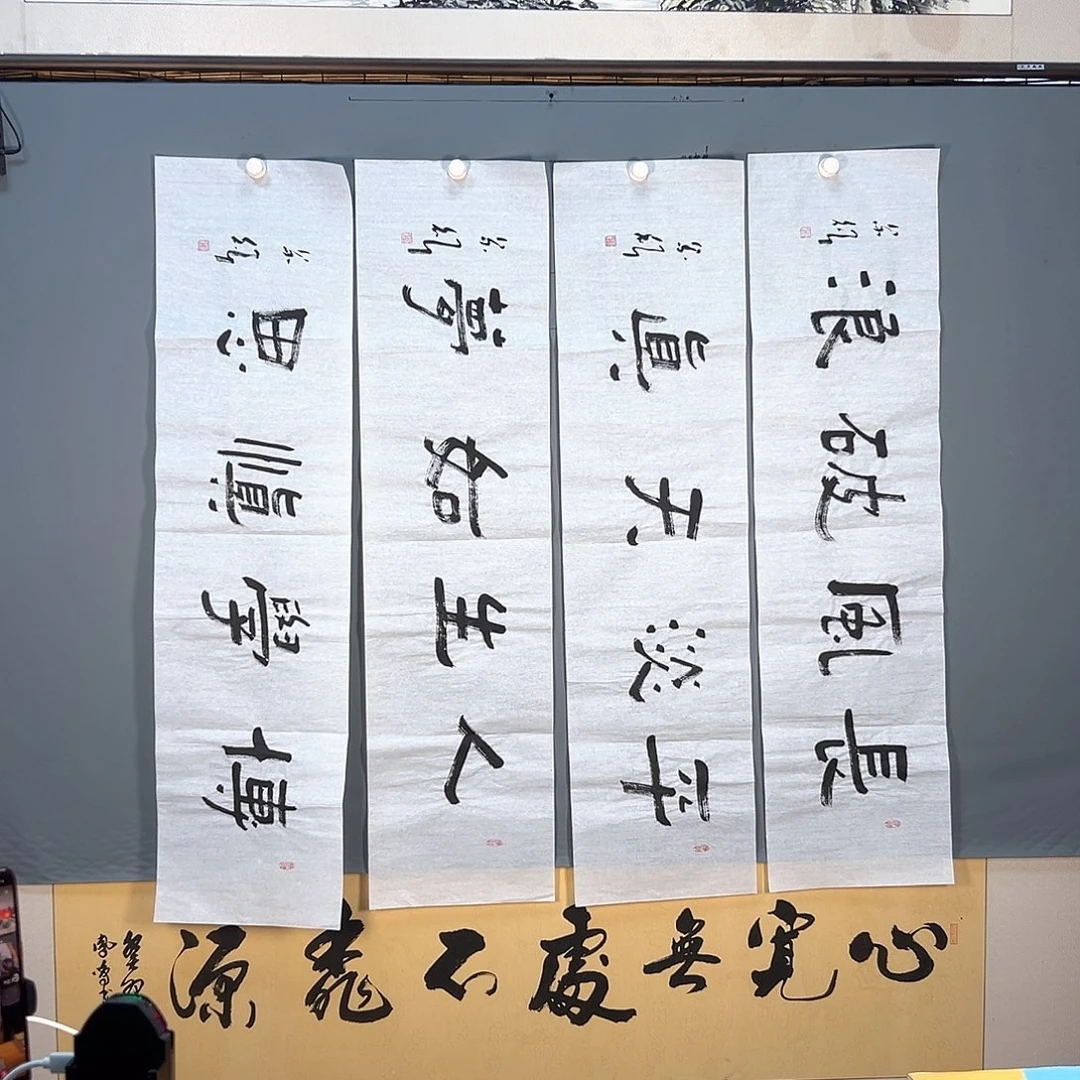 長風破浪
平淡天眞
人生如夢
博學愼思
心寬無處不桃源